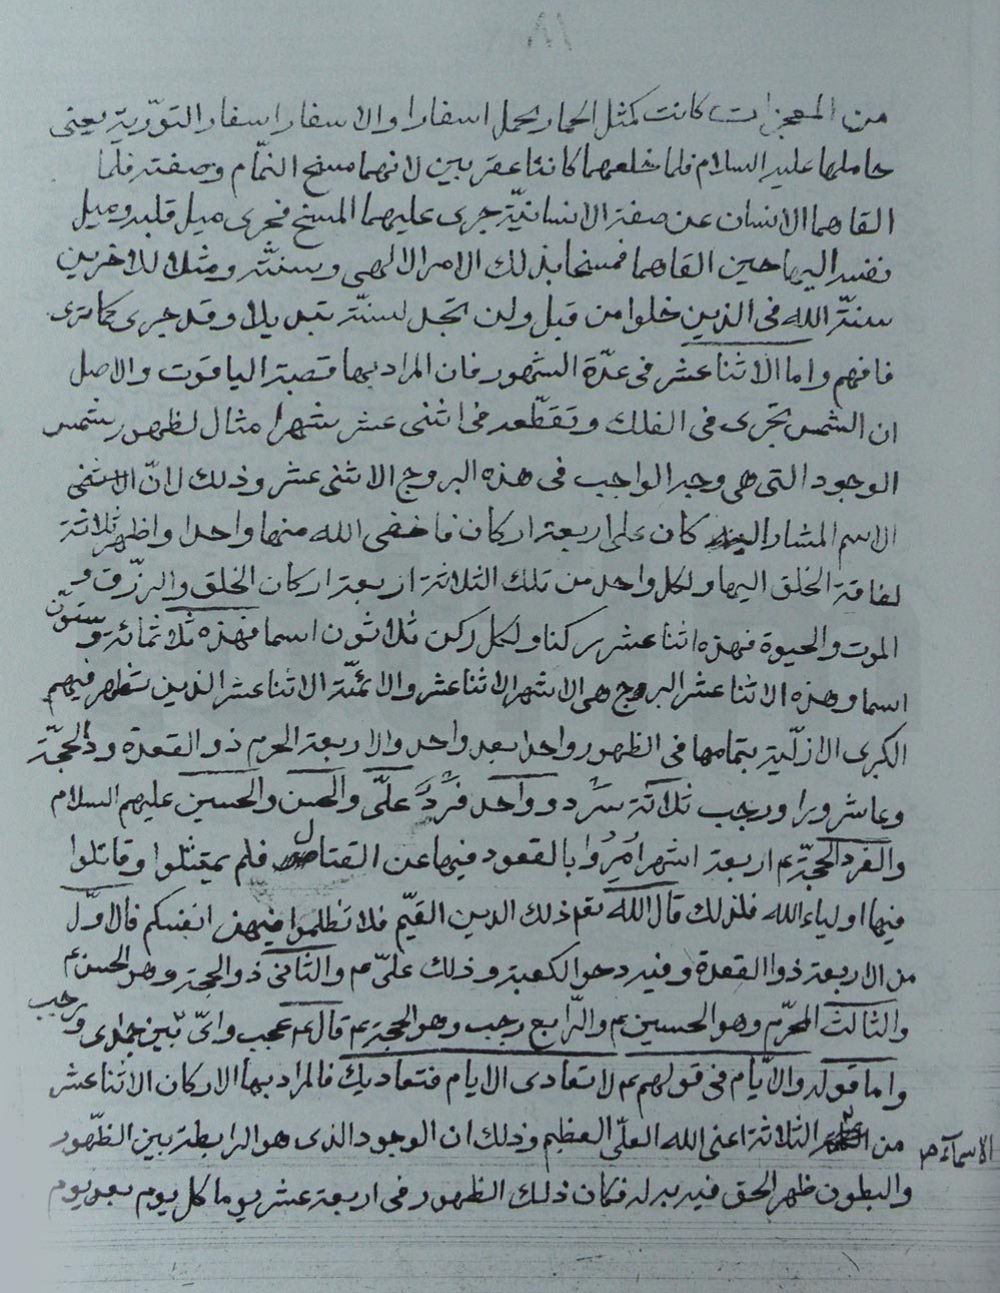 ١٨
من المعجزات كانت كمثل الحمار يحمل اسفارا والاسفار اسفار التورية يعنى
حاملها عليه السلام فلما خلعهما كانتا عقربين لانهما مسخ النمّام وصفته فلما
القاهما الانسان عن صفة الانسانيّة جرى عليهما المسخ فجرى ميل قلبه وميل
نفسه اليهما حين القاهما فمسخا بذلك الامر الالهى وسنته ومثلا للاخرين
سنّة الله فى الذين خلوا من قبل ولن تجد لسنّة تبديلا وقد جرى كما ترى
فافهم واما الاثنا عشر فى عدّة الشهور فان المراد بها قصبة الياقوت والاصل
ان الشمس تجرى فى الفلك وتقطّعه فى اثنى عشر شهرا مثال لظهور شمس
الوجود التى هى وجه الواجب فى هذه البروج الاثنى عشر وذلك لانّ
الاسم المشار اليه كان على اربعة اركان فاخفى الله منها واحدا واظهر ثلاثة
لفاقة الخلق اليها ولكل واحد من تلك الثلاثة اربعة اركان الخلق والرزق و
الموت والحيوة فهذه اثنا عشر ركنا ولكل ركن ثلاثون اسما فهذه ثلاثمائة وستون
اسما وهذه الاثنا عشر البروج هى الاشهر الاثنا عشر والائمّة الاثنا عشر الذين تظهر فيهم
الكبرى الازليّة بتمامها فى الظهور واحد بعد واحد والاربعة الحرم ذو القعدة وذالحجّة
وعاشورا ورجب ثلاثة سَرْد وواحد فَرْدٌ علىّ والحسن والحسين عليهم السلام
والفرد الحجّة ع‍م اربعة اشهر اُمِرُوا بالقعود فيها عن القتال فلم يمتثلوا وقاتلوا
فيها اولياء الله فلذلك قال الله تع‍م ذلك الدين القيّم فلا تظلموا فيهن انفسكم فالاوّل
من الاربعة ذوا القعدة وفيه دحو الكعبة وذلك علىّ ع‍م والثانى ذو الحجة وهو الحسن ع‍م
والثالث المحرّم وهو الحسين ع‍م والرابع رجب وهو الحجة ع‍م قال ع‍م عجب واىّ بين جمادى ورجب
واما قوله والايّام فى قولهم ع‍م لا تعادى الايام فتعاديك فالمراد بها الاركان الاثنا عشر
من الاسماء ص‍ح الثلاثة اعنى الله العلىّ العظيم وذلك ان الوجود الذى هو الرابطة بين الظهور
والبطون ظهر الحق فيه به له فكان ذلك الظهور فى اربعة عشر يوما كل يوم بعد يوم